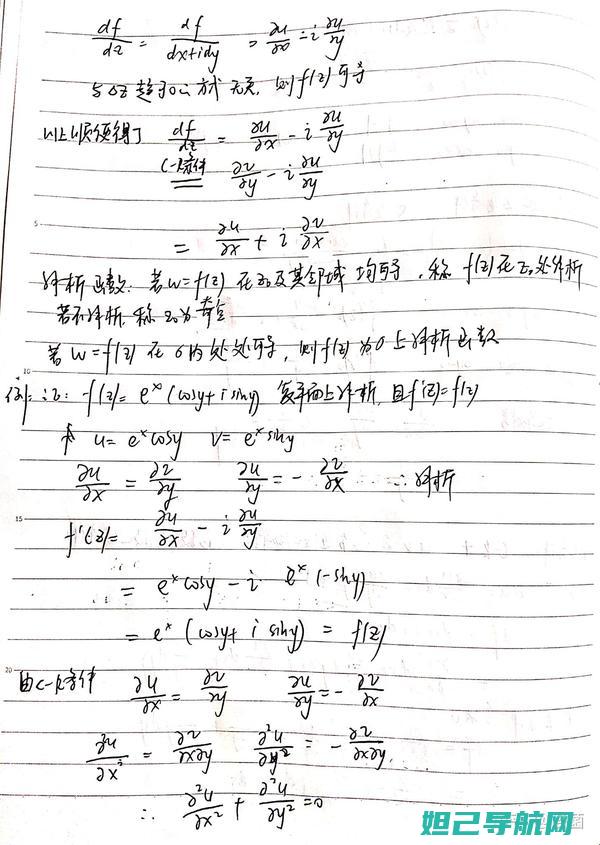 df/dz = df/(dx+idy) = ∂u/∂x - i ∂u/∂y
与Δz趋于0的方式无关, 则f(z)可导
以上顺便得了 df/dz = ∂u/∂x - i ∂u/∂y
C-R条件 ∂v/∂y - i ∂u/∂y
5
= ∂u/∂x + i ∂v/∂x
解析函数: 若w=f(z) 在z₀及其邻域 均可导, 称 f(z)在z₀处解析
若不解析, 称z₀为奇点
若 w=f(z) 在 σ内处处可导, 则f(z)为σ上解析函数
10
例: 证: f(z)= eˣ(cosy+isiny) 复平面上解析, 且f'(z)=f(z)
u=eˣcosy v=eˣsiny
∂u/∂x = ∂v/∂y ∂u/∂y = -∂v/∂x ∴解析
15
f'(z)= ∂u/∂x - i ∂u/∂y
= eˣcosy - i eˣ(-siny)
= eˣ(cosy+ i siny) = f(z)
20
由C-R条件 ∂u/∂x = ∂v/∂y ∂u/∂y = -∂v/∂x
∂²u/∂x² = ∂²v/∂x∂y ∂²u/∂y² = -∂²v/∂x∂y.
∴ ∂²u/∂x² + ∂²u/∂y² =0
妲己导航网